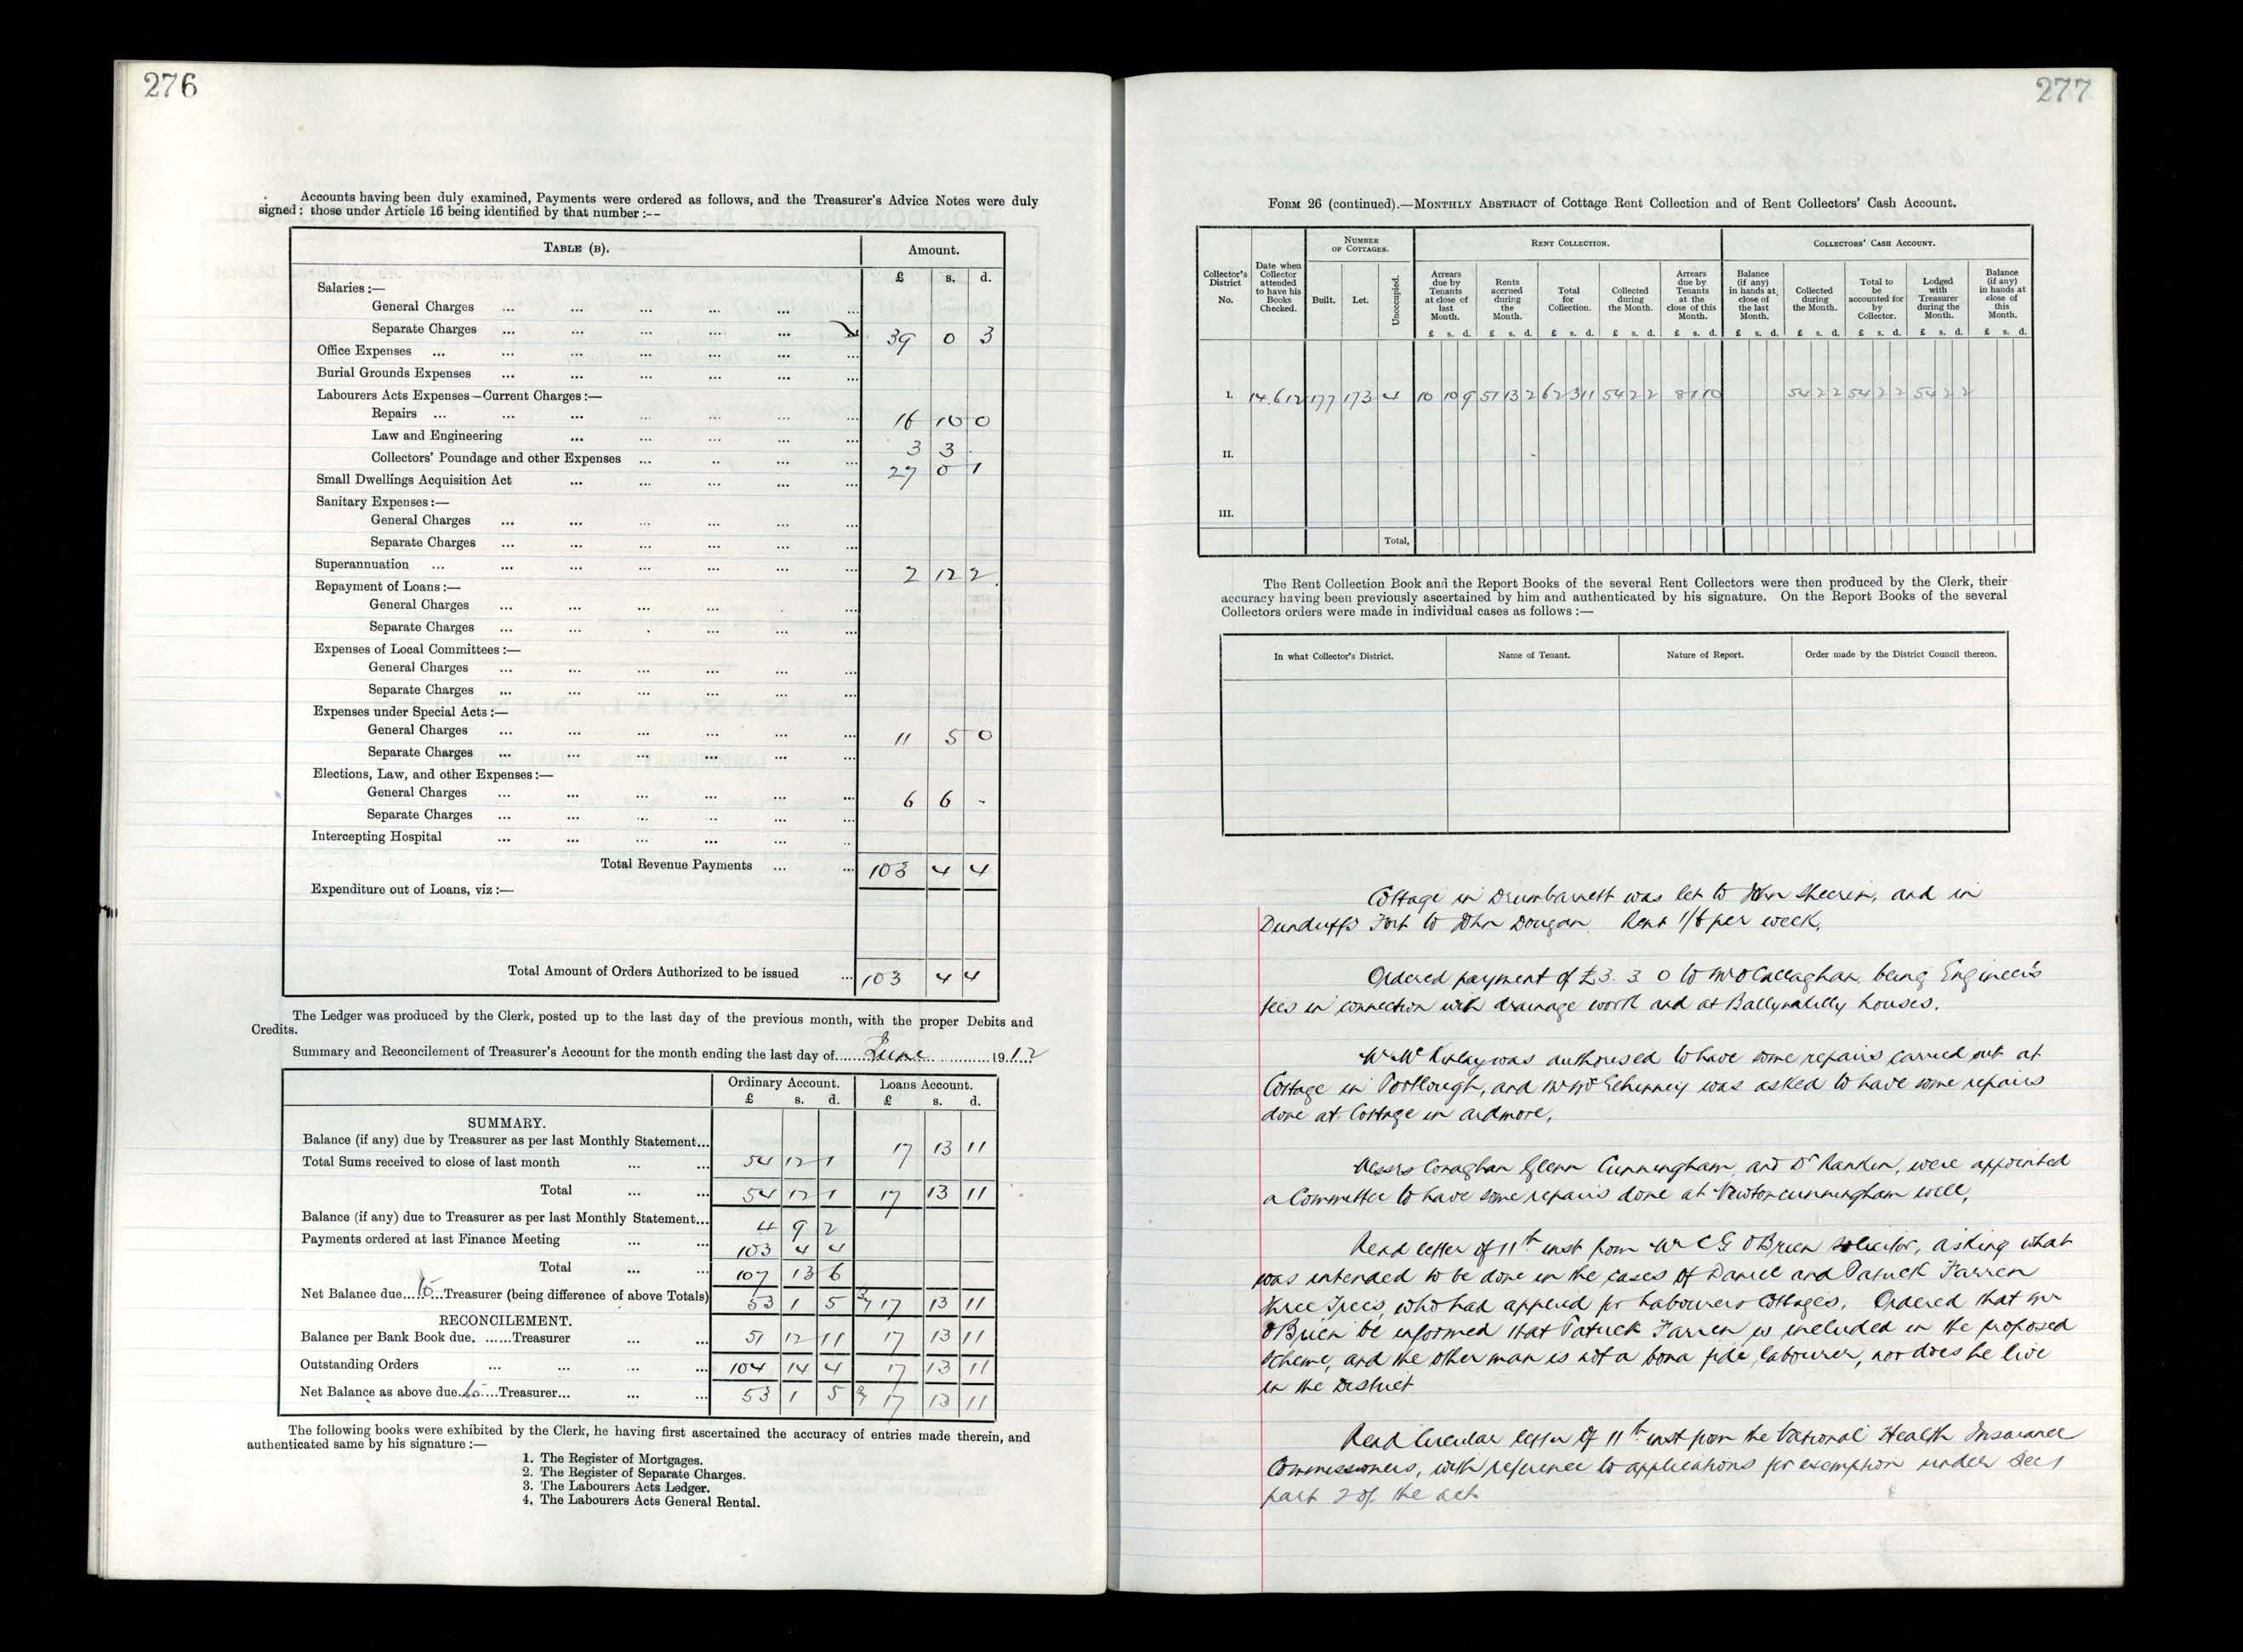 276
Accounts having been duly examined, Payments were ordered as follows, and the Treasurer's Advice Notes were duly
signed: those under Article 16 being identified by that number :--
TABLE (B). Amount.
£ s. d.
Salaries :—
General Charges ... ... ... ... ... ...
Separate Charges ... ... ... ... ... 39 0 3
Office Expenses ... ... ... ... ... ... ...
Burial Grounds Expenses ... ... ... ... ... ...
Labourers Acts Expenses—Current Charges :—
Repairs ... ... ... ... ... ... ... 16 10 0
Law and Engineering ... ... ... ... ... 3 3 .
Collectors' Poundage and other Expenses ... .. ... ... 27 0 1
Small Dwellings Acquisition Act ... ... ... ... ...
Sanitary Expenses :—
General Charges ... ... ... ... ... ...
Separate Charges ... ... ... ... ... ...
Superannuation ... ... ... ... ... ... ... 2 12 2
Repayment of Loans :—
General Charges ... ... ... . ... ...
Separate Charges ... ... . ... ... ...
Expenses of Local Committees :—
General Charges ... ... ... ... ... ...
Separate Charges ... ... ... ... ... ...
Expenses under Special Acts :—
General Charges ... ... ... ... ... ... 11 5 0
Separate Charges ... ... ... ... ... ...
Elections, Law, and other Expenses :—
General Charges ... ... ... ... ... ... 6 6 -
Separate Charges ... ... ... .. ... ...
Intercepting Hospital ... ... ... ... ... ..
Total Revenue Payments ... ... 103 4 4
Expenditure out of Loans, viz :—
Total Amount of Orders Authorized to be issued ... 103 4 4
The Ledger was produced by the Clerk, posted up to the last day of the previous month, with the proper Debits and
Credits.
Summary and Reconcilement of Treasurer's Account for the month ending the last day of June 1912
Ordinary Account. Loans Account.
£ s. d. £ s. d.
SUMMARY.
Balance (if any) due by Treasurer as per last Monthly Statement... 17 13 11
Total Sums received to close of last month ... ... 54 12 1
Total ... ... 54 12 1 17 13 11
Balance (if any) due to Treasurer as per last Monthly Statement... 4 9 2
Payments ordered at last Finance Meeting ... ... 103 4 4
Total ... ... 107 13 6
Net Balance due to Treasurer (being difference of above Totals) 53 1 5 17 13 11
RECONCILEMENT.
Balance per Bank Book due. ......Treasurer ... ... 51 12 11 17 13 11
Outstanding Orders ... ... ... ... 104 14 4 17 13 11
Net Balance as above due to Treasurer... ... ... 53 1 5 17 13 11
The following books were exhibited by the Clerk, he having first ascertained the accuracy of entries made therein, and
authenticated same by his signature :—
1. The Register of Mortgages.
2. The Register of Separate Charges.
3. The Labourers Acts Ledger.
4, The Labourers Acts General Rental.
277
FORM 26 (continued).—MONTHLY ABSTRACT of Cottage Rent Collection and of Rent Collectors' Cash Account.
Collector's District No.
Date when Collector attended to have his Books Checked.
NUMBER OF COTTAGES.
Built. Let. Unoccupied.
RENT COLLECTION.
Arrears due by Tenants at close of last Month.
Rents accrued during the Month.
Total for Collection.
Collected during the Month.
Arrears due by Tenants at the close of this Month.
COLLECTORS' CASH ACCOUNT.
Balance (if any) in hands at close of the last Month.
Collected during the Month.
Total to be accounted for by Collector.
Lodged with Treasurer during the Month.
Balance (if any) in hands at close of this Month.
£ s. d. £ s. d. £ s. d. £ s. d. £ s. d. £ s. d. £ s. d. £ s. d. £ s. d. £ s. d.
I. 14.6.12 177 173 4 10 10 9 51 13 2 62 3 11 54 2 2 8 1 10 54 2 2 54 2 2 54 2 2
II.
III.
Total,
The Rent Collection Book and the Report Books of the several Rent Collectors were then produced by the Clerk, their
accuracy having been previously ascertained by him and authenticated by his signature. On the Report Books of the several
Collectors orders were made in individual cases as follows :—
In what Collector's District. Name of Tenant. Nature of Report. Order made by the District Council thereon.
Cottage in Drumbarnett was let to John Sheerin, and in
Dunduffs Fort to John Dougan. Rent 1/6 per week.
Ordered payment of £3. 3 0 to Mr O Callaghan being Engineer's
fees in connection with drainage work and at Ballynalilly houses.
Mr McKinlay was authorised to have some repairs carried out at
Cottage in Portlough, and Mr McElhinney was asked to have some repairs
done at Cottage in Ardmore.
Messrs Conaghan Glenn Cunningham, and Dr Rankin, were appointed
a Committee to have some repairs done at Newtoncunningham well.
Read letter of 11th inst from Mr C G O'Brien Solicitor, asking what
was intended to be done in the cases of Daniel and Patrick Farren
Three Trees, who had applied for Labourers Cottages. Ordered that Mr
O'Brien be informed that Patrick Farren is included in the proposed
scheme, and the other man is not a bona fide labourer, nor does he live
in the District
Read Circular letter of 11th inst from the National Health Insurance
Commissioners, with reference to applications for exemption under Sec 1
part 2 of the act